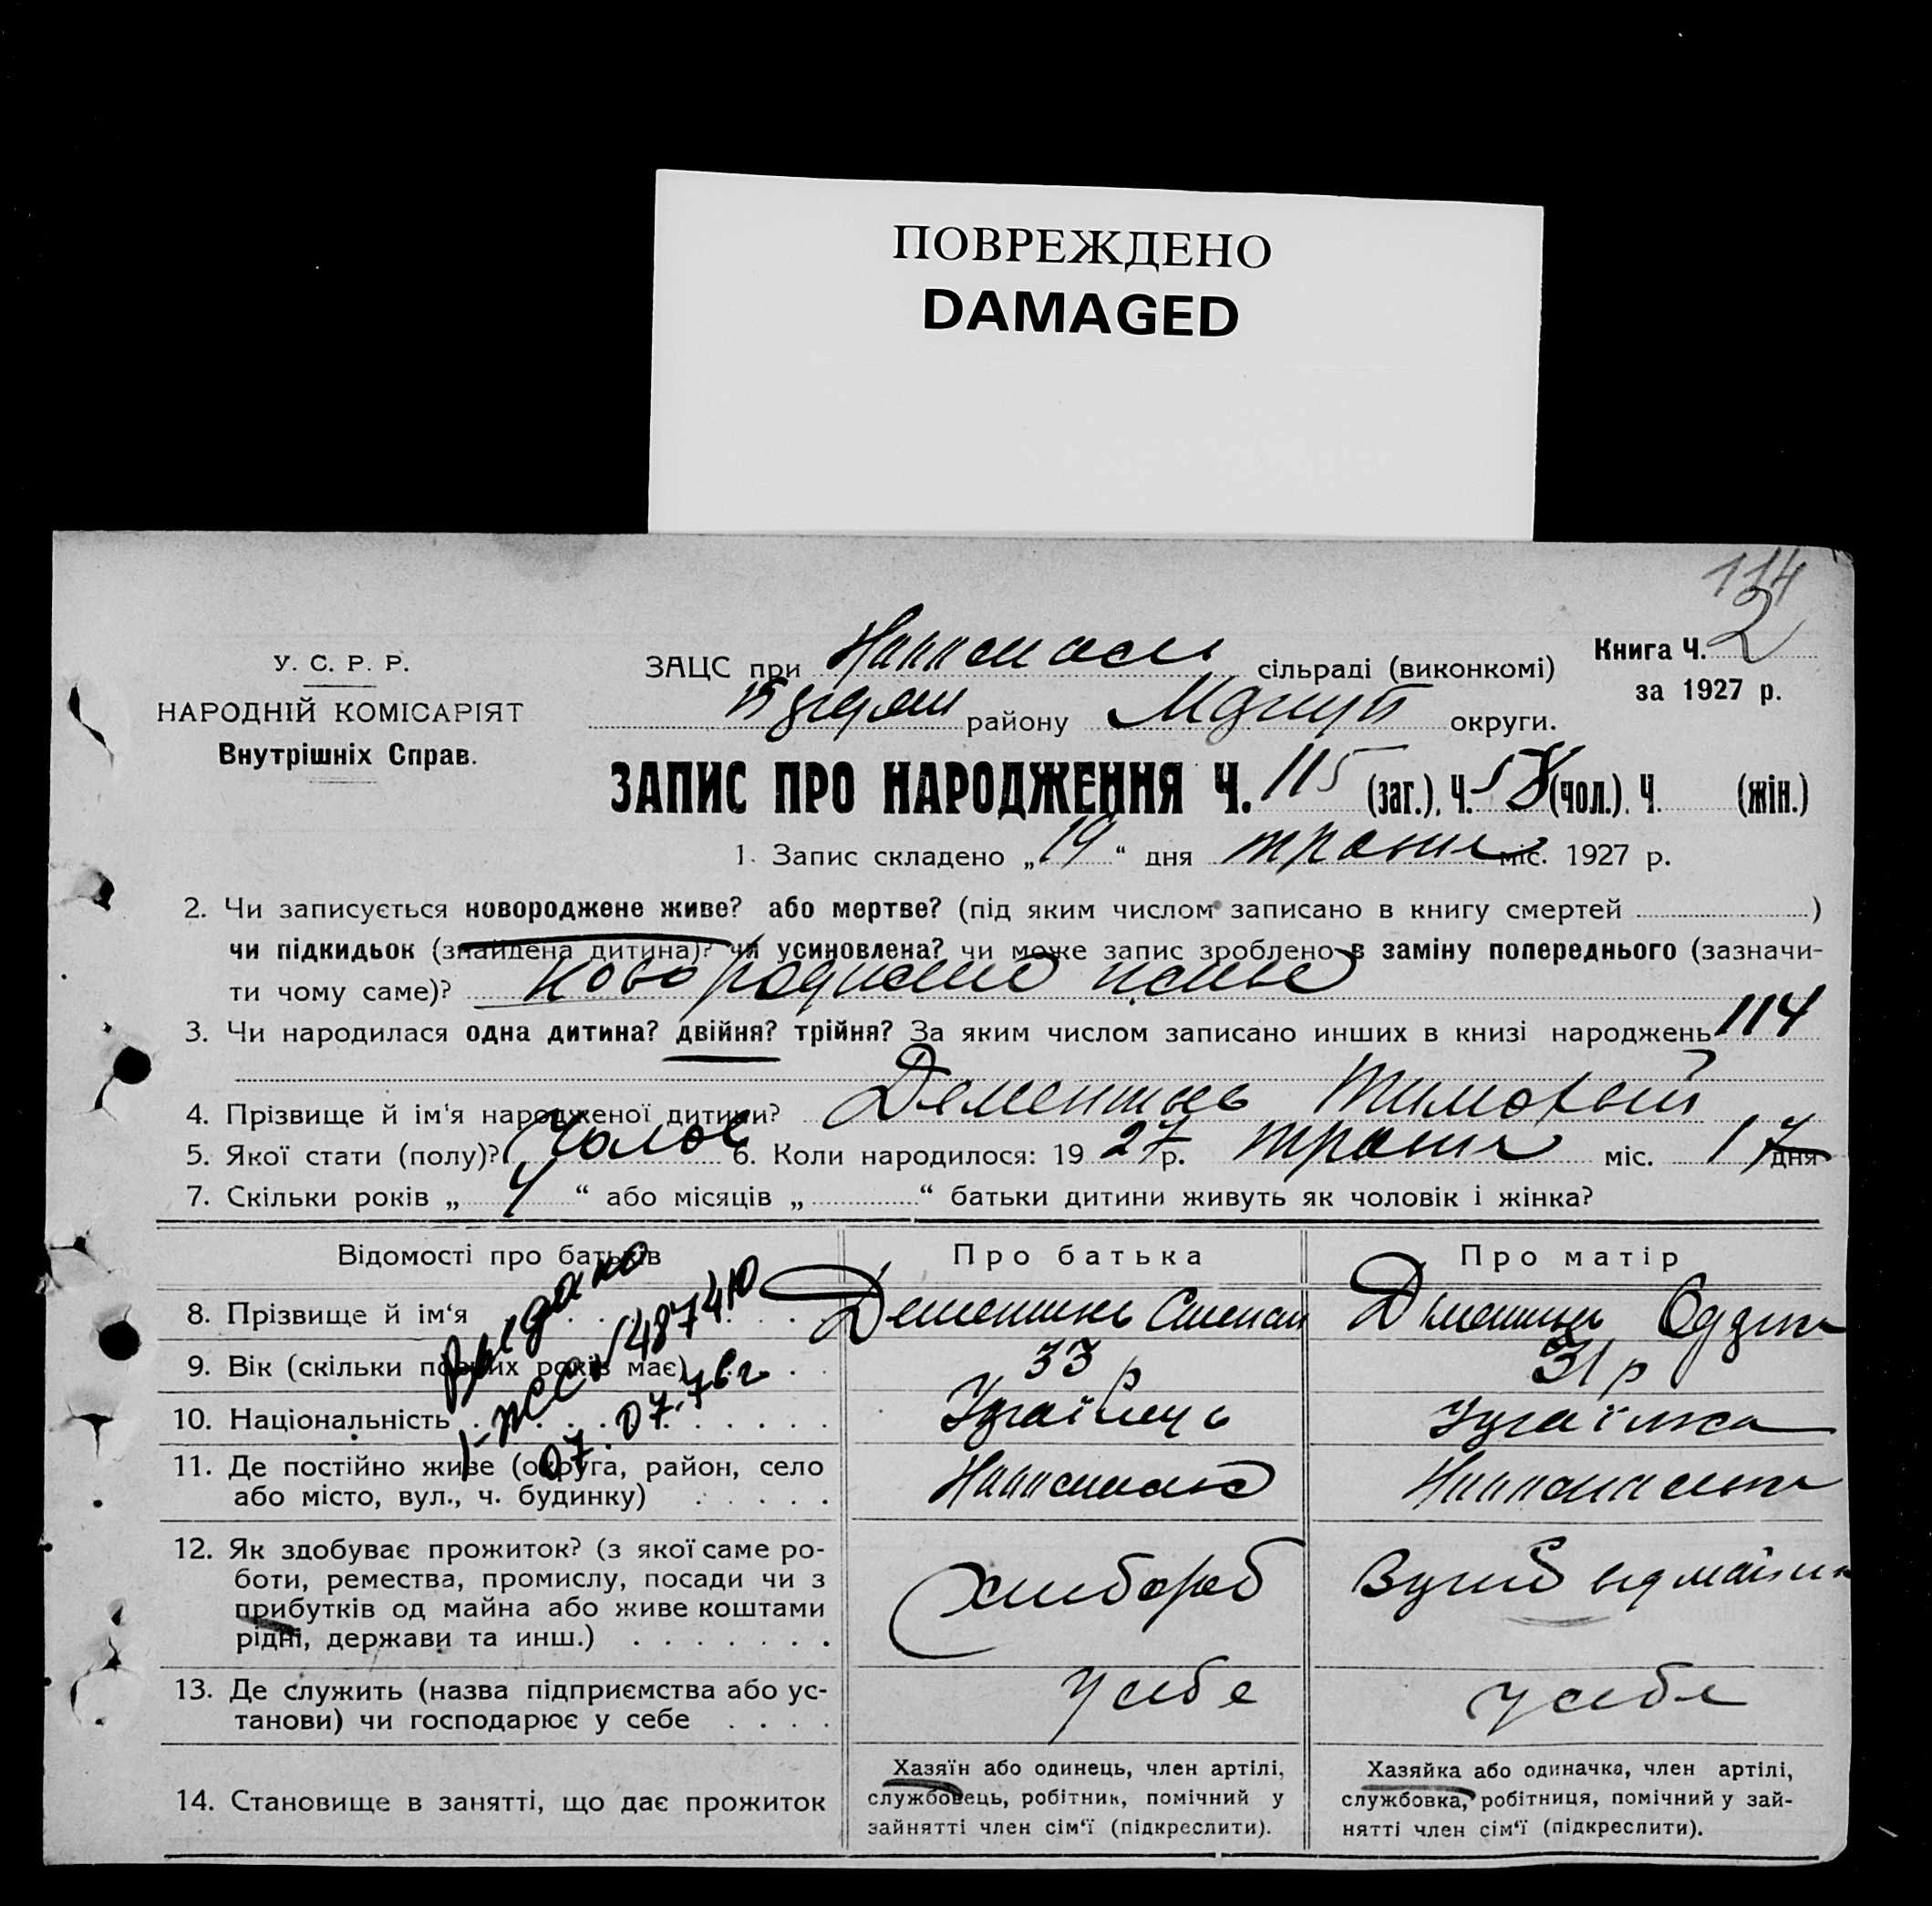 ПОВРЕЖДЕНО
DAMAGED
114
У. С. Р. Р.
НАРОДНІЙ КОМІСАРІЯТ
Внутрішніх Справ.
ЗАЦС при сільраді (виконкомі)
району округи.
Книга Ч. 2
за 1927 р.
ЗАПИС ПРО НАРОДЖЕННЯ Ч. 115 (заг.), Ч. 58 (чол.). Ч. (жін.)
1. Запис складено „19“ дня травня міс. 1927 р.
2. Чи записується новороджене живе? або мертве? (під яким числом записано в книгу смертей )
чи підкидьок (знайдена дитина)? чи усиновлена? чи може запис зроблено в заміну попереднього (зазначи-
ти чому саме)?
3. Чи народилася одна дитина? двійня? трійня? За яким числом записано инших в книзі народжень 114
4. Прізвище й ім‘я народженої дитини? Дементець Тимофій
5. Якої стати (полу)? Чолов 6. Коли народилося: 1927 р. травня міс. 17 дня
7. Скільки років „ 4 “ або місяців „ “ батьки дитини живуть як чоловік і жінка?
Відомості про батьків
Про батька
Про матір
8. Прізвище й ім‘я Дементець Степан
9. Вік (скільки повних років має) 33 р 31 р
10. Національність Україньць Українка
11. Де постійно живе (округа, район, село
або місто, вул., ч. будинку)
12. Як здобуває прожиток? (з якої саме ро-
боти, ремества, промислу, посади чи з
прибутків од майна або живе коштами
рідні, держави та инш.)
Хлибороб
13. Де служить (назва підприємства або ус-
танови) чи господарює у себе
у себе
у себе
14. Становище в занятті, що дає прожиток
Хазяїн або одинець, член артілі,
службовець, робітник, помічний у
зайнятті член сім‘ї (підкреслити).
Хазяйка або одиначка, член артілі,
службовка, робітниця, помічний у зай-
нятті член сім‘ї (підкреслити).
Выдано
487410
07.07.76г